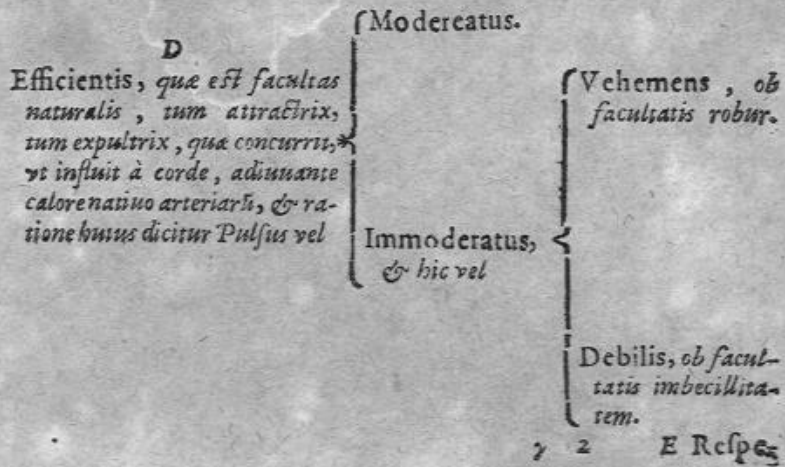 D
Efficientis, quæ eſt facultas
naturalis, tum attractrix,
tum expultrix, quæ concurrit,*
vt influit à corde, adiuuante
calore natiuo arteriarũ, & ra-
tione huius dicitur Pulſus vel
Modereatus.
Immoderatus,
& hic vel
Vehemens, ob
facultatis robur.
Debilis, ob facul-
tatis imbecillita-
tem.
γ 2 E Reſpe-